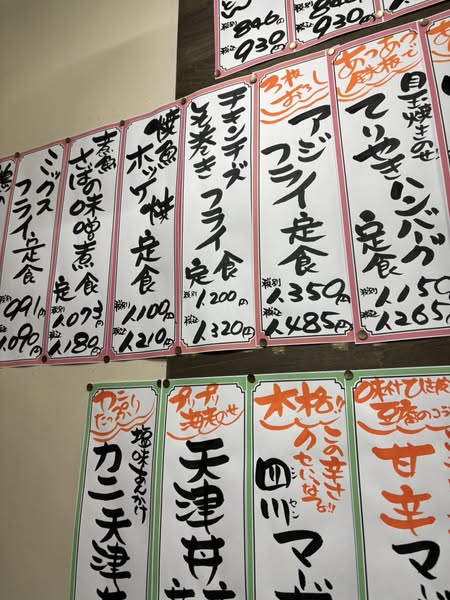 税別 846円
税込 930円
846円
930円
あつあつ
鉄板で
目玉焼きのせ
てりやきハンバーグ
定食
税別 1,150
税込 1,265
3枚
おろし
アジ
フライ定食
税別 1,350円
税込 1,485円
チキンチーズ
しそ巻き
フライ定食
税別 1,200円
税込 1,320円
焼魚
ホッケ焼
定食
税別 1,100円
税込 1,210円
煮魚
さばの味噌煮
定食
税別 1,073円
税込 1,180円
ミックス
フライ定食
税別 991円
税込 1,090円
味付てひき肉
豆腐のコン
甘辛
マ
本格!!
この辛さ
四川
シセン
マーボ
プリプリ
海老のせ
天津丼
カニ
たっぷり
塩味あんかけ
カニ天津